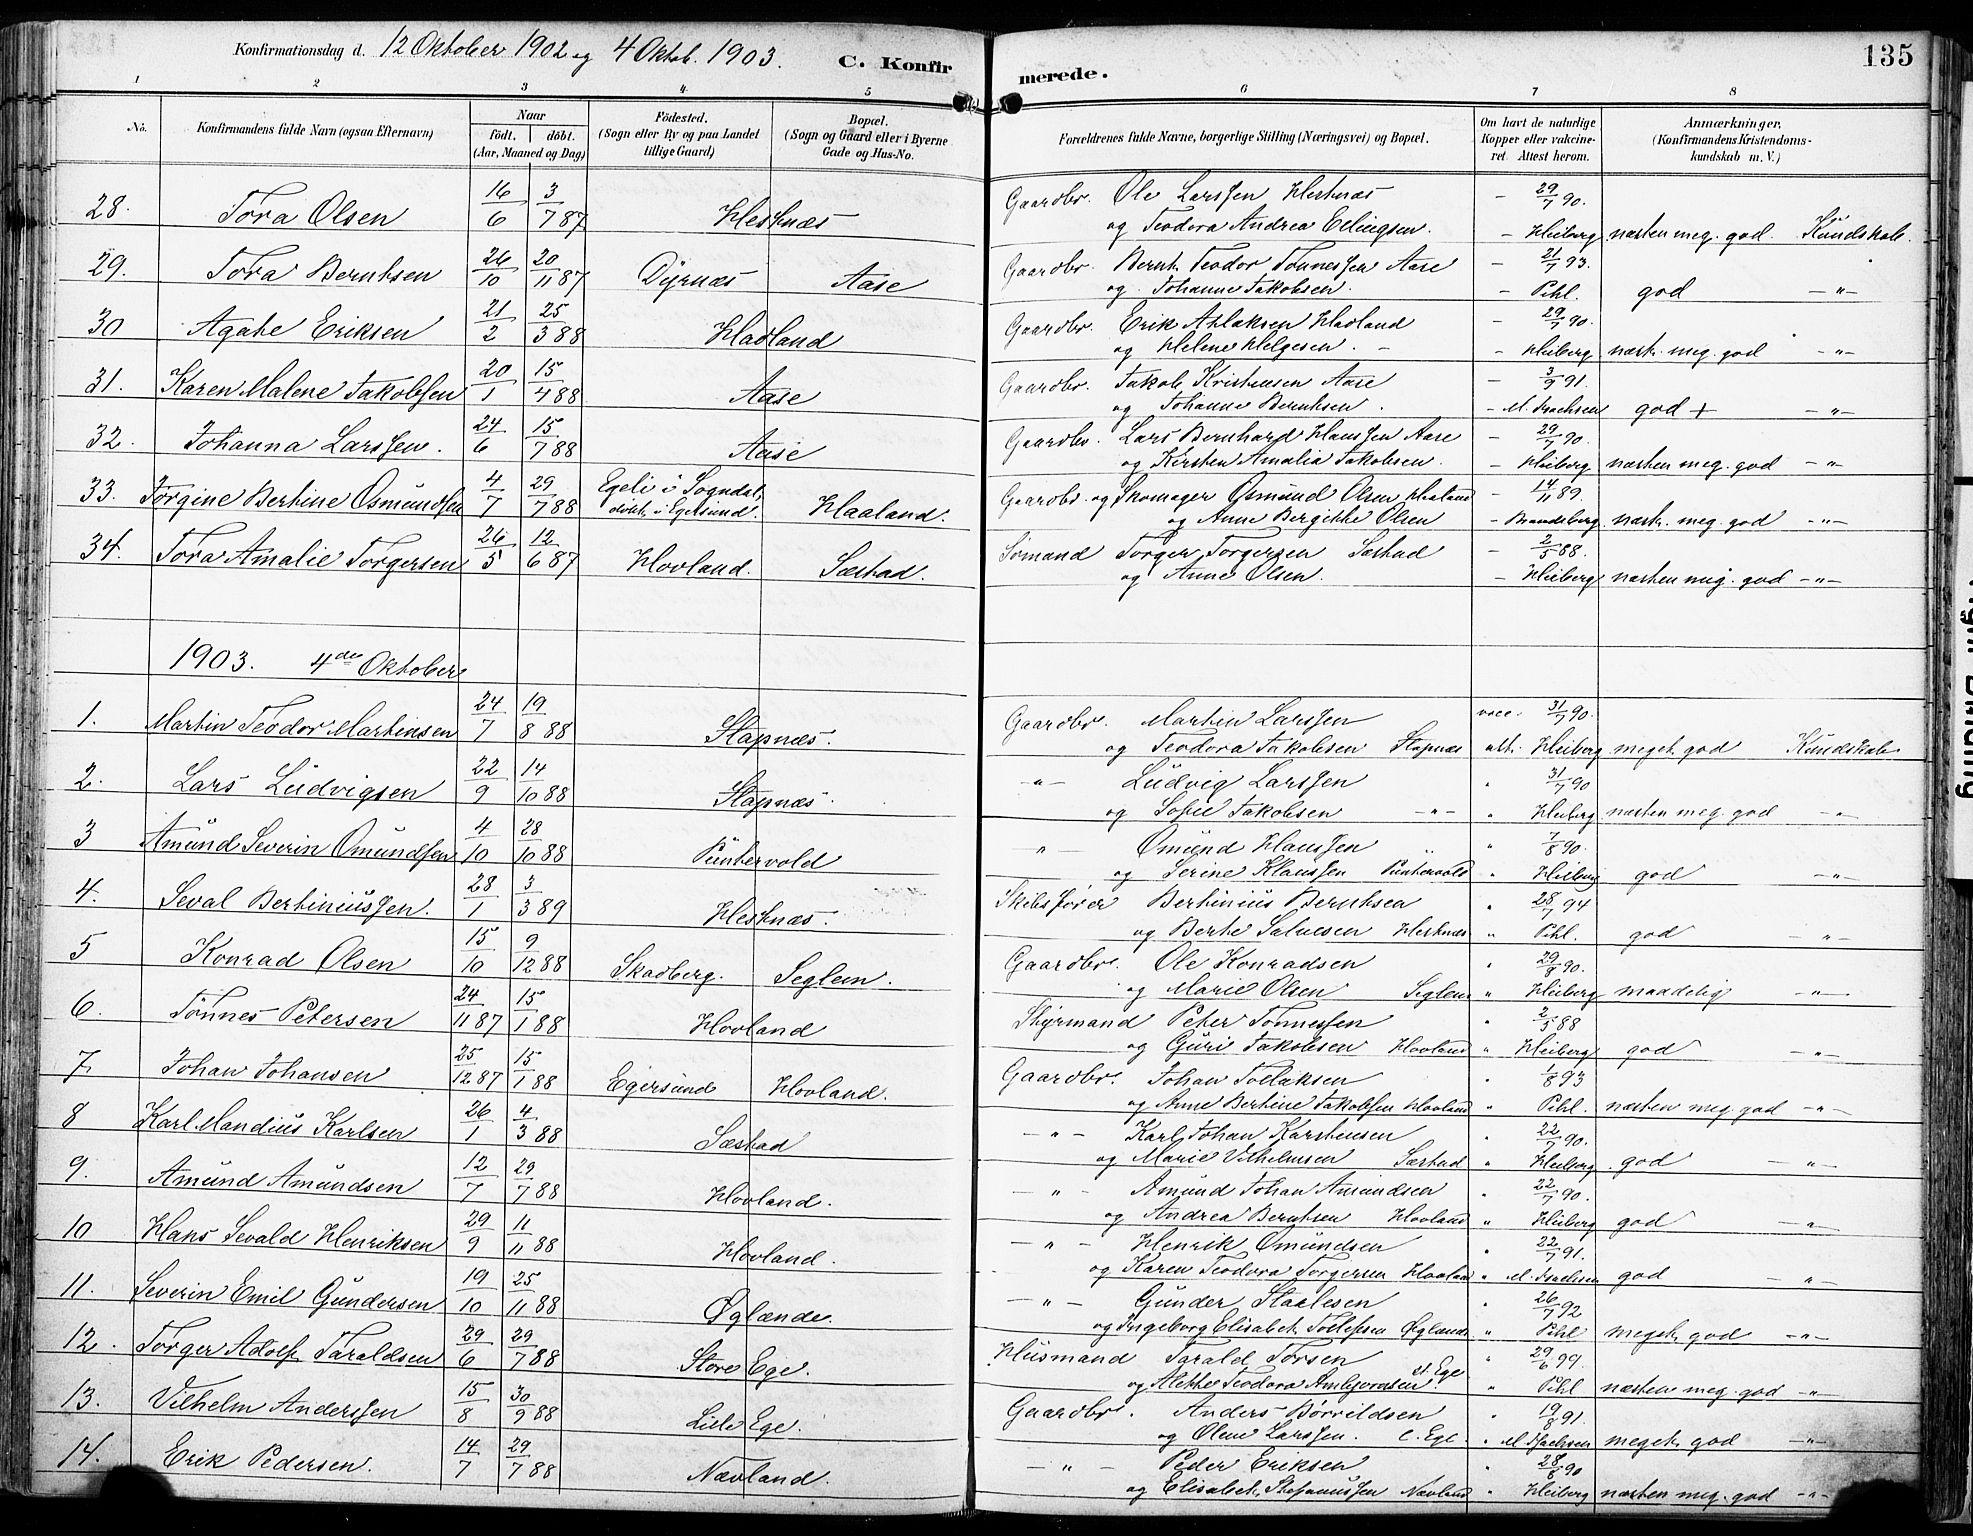 Konfirmationsdag d. 12 Oktober 1902 og 4 Oktob. 1903.
C. Konfirmerede.
135
1 2 3 4 5 6 7 8
No.
Konfirmandens fulde Navn (ogsaa Efternavn)
Naar
födt. döbt.
(Aar, Maaned og Dag)
Födested.
(Sogn eller By og paa Landet
tillige Gaard)
Bopæl.
(Sogn og Gaard eller i Byerne
Gade og Hus-No.
Forældrenes fulde Navne, borgerlige Stilling (Næringsvei) og Bopæl.
Om havt de naturlige
Kopper eller vakcine-
ret. Attest herom.
Anmærkninger,
(Konfirmandens Kristendoms-
kundskab m. V.)
28. Tora Olsen 16/6 3/7 87 Hestnæs Gaardbr. Ole Larssen Hestnæs – 29/7 90.
og Teodora Andrea Edingsen. – Heiberg næsten meg. god. Kundskab.
29. Tora Berntsen 26/10 20/11 87 Dyrnæs Aase Gaardbr. Bernt Teodor Tønnessen Aase – 21/7 93.
og Johanne Jakobsen. – Pihl. god –"–
30 Agate Eriksen 21/2 25/3 88 Hadland Gaardbr. Erik Atlaksen Hadland – 29/7 90.
og Helene Helgesen. – – Heiberg næst. meg. god –"–
31. Karen Malene Jakobsen 20/1 15/4 88 Aase Gaardbr. Jakob Kristensen Aase – 3/9 91.
og Johanne Berntsen. – M. Isachsen god + –"–
32. Johanna Larssen. 24/6 15/7 88 Aase Gaardbr. Lars Bernhard Hanssen Aase – 29/7 90.
og Kirsten Amalia Jakobsen. – Heiberg næsten meg. god –"–
33. Torgine Bertine Osmundsen 4/7 29/7 88 Egeli i Sogndal, døbt i Egersund. Haaland. Gaardbr. og Skomager Osmund Olsen Haaland – 14/11 89.
og Anne Bergitte Olsen – Brandeberg næst. meg. god –"–
34. Tora Amalie Torgersen 26/5 12/6 87 Hovland. Sæstad. Sømand Torger Torgersen Sæstad – 2/5 88.
og Anne Olsen. – Heiberg næsten meg. god –"–
1903. 4de Oktober
1. Martin Teodor Martinsen 24/7 19/8 88 Stapnæs. Gaardbr. Martin Larssen vacc. 31/7 90.
og Teodora Jakobsen Stapnæs att. Heiberg meget god Kundskab
2. Lars Ludvigsen 22/9 14/10 88 Stapnæs. –"– Ludvig Larssen " 31/7 90
og Sofie Jakobsen –"– " Heiberg næsten meg. god –"–
3 Amund Severin Omundsen 4/10 28/10 88 Puntervold –"– Omund Klaussen " 7/8 90.
og Serine Klaussen Puntervold " Heiberg god –"–
4. Seval Bertiniussen. 28/1 3/3 89 Hestnæs. Skibsfører Bertinius Berntsen " 28/7 94
og Berte Salvesen Hestnæs " Pihl. god –"–
5 Konrad Olsen 15/10 9/12 88 Skadberg. Seglem. Gaardbr. Ole Konradsen " 29/8 90.
og Marie Olsen Seglem " Heiberg maadelig –"–
6. Tønnes Petersen 24/11 87 15/1 88 Hovland Styrmand Peter Tønnessen " 2/5 88
og Guri Jakobsen Hovland " Heiberg god –"–
7. Johan Johansen 25/12 87 15/1 88 Egersund Hovland. Gaardbr. Johan Tollaksen " 1/8 93
og Anne Bertine Jakobsen Hovland " Pihl. næsten meg. god –"–
8 Karl Mandius Karlsen 26/1 4/3 88 Sæstad –"– Karl Johan Karstensen " 22/7 90.
og Marie Vilhelmsen Sæstad " Heiberg god –"–
9. Amund Amundsen 12/7 29/7 88 Hovland. –"– Amund Johan Amundsen " 22/7 90.
og Andrea Berntsen Hovland " Heiberg god –"–
10 Hans Sevald Henriksen 29/9 11/11 88 Hovland. –"– Henrik Omundsen " 22/7 91.
og Karen Teodora Torgersen Hovland " M. Isachsen god –"–
11. Severin Emil Gundersen 19/10 25/11 88 Øglænde. –"– Gunder Staalesen " 26/7 92
og Ingeborg Elisabet Tollefsen Øglænde " Pihl meget god –"–
12. Torger Adolf Taraldsen 29/6 29/7 88 Store Ege. Husmand Tarald Torsen " 29/6 99.
og Alette Teodora Ambjørnsen St. Ege. " Pihl næsten meg. god –"–
13. Vilhelm Anderssen 15/8 30/9 88 Lille Ege. Gaardbr. Anders Børrildsen " 19/8 91.
og Olene Larssen. L. Ege. " M. Isachsen meget god –"–
14. Erik Pedersen. 14/7 29/7 88 Nævland. –"– Peder Eriksen " 28/8 90
og Elisabet Stefanussen Nævland " Heiberg næsten meg. god –"–